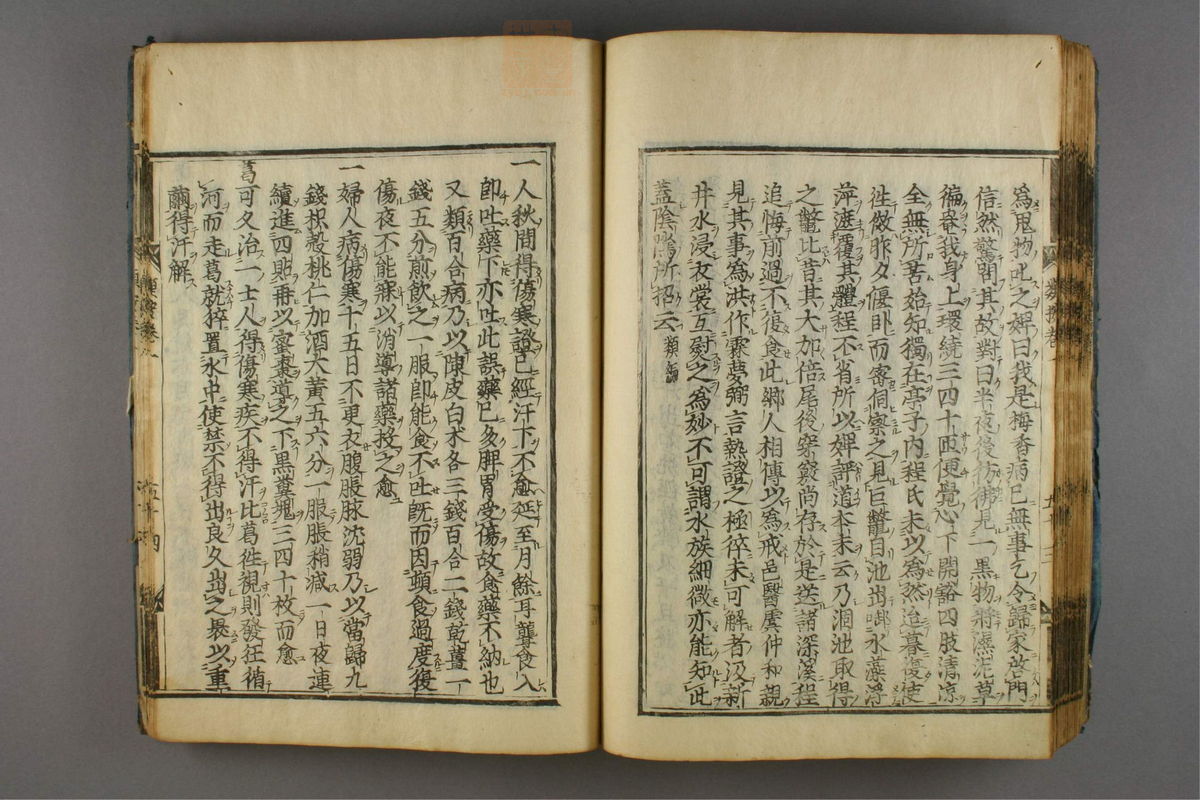 為鬼物叱之婢曰我是梅香病已無事乞令歸家啟門
信然驚問其故對曰半夜後彷彿見一黑物將濕泥草
徧罨我身上環繞三四十匝便覺心下開豁四肢清凉
全無所苦始知獨在亭子內程氏未以為然迨暮復使
往儆昨夕偃臥而密伺察之見巨鼈自池出啣水藻浮
萍遮覆其體程不省所以婢詳道本末云乃涸池取得
之鼈比昔其大加倍尾後穿竅尚存於是送諸深溪程
追悔前過不復食此鄉人相傳以為戒邑醫虞仲和親
見其事為洪作霖夢弼言熱證之極猝未可解者汲新
井水浸衣裳互熨之為妙不可謂水族細微亦能知此
蓋陰隲所招云類編
一人秋間得傷寒證已經汗下不愈延至月餘耳聾食入
即吐藥下亦吐此誤藥已多脾胃受傷故食藥不納也
又類百合病乃以陳皮白朮各三錢百合二錢乾薑一
錢五分煎飲之一服即能食不吐既而因頓食過度復
傷夜不能寐以消導諸藥投之愈
一婦人病傷寒十五日不更衣腹脹脉沈弱乃以當歸九
錢枳殼桃仁加酒大黃五六分一服脹稍減一日夜連
續進四貼再以蜜棗導之下黑糞塊三四十枚而愈
葛可久治一士人得傷寒疾不得汗比葛徃視則發狂循
河而走葛就猝置水中使禁不得出良久出之裹以重
繭得汗解
類案卷一